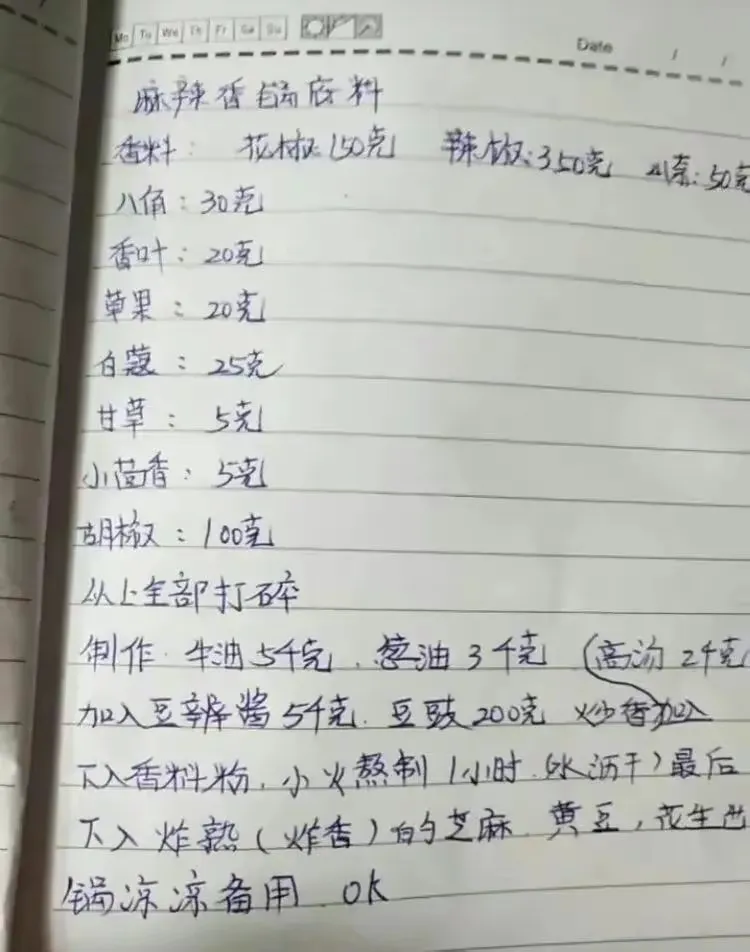 Mo Tu We Th Fr Sa Su
Date / /
麻辣香锅底料
香料: 花椒150克 辣椒:350克 :50克
八角:30克
香叶:20克
草果:20克
白蔻:25克
甘草:5克
小茴香:5克
胡椒:100克
以上全部打碎
制作.牛油5千克.葱油3千克(高汤2千克
加入豆辨酱5千克.豆豉200克 炒香加入
下入香料粉.小火熬制1小时.(水沥干)最后
下入炸熟(炸香)的芝麻.黄豆,花生出
锅凉凉备用.OK